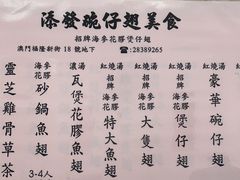 添發碗仔翅美食
招牌海參花膠煲仔翅
澳門福隆新街18號地下
☎28389265
紅燒湯
豪華碗仔翅
紅燒湯
招牌海參花膠煲仔翅
紅燒湯
招牌大瓦煲翅
紅燒湯
招牌海參花膠特大魚翅
濃湯
瓦煲花膠魚翅
濃湯
海參花膠砂鍋魚翅
3-4人
靈芝雞骨草茶